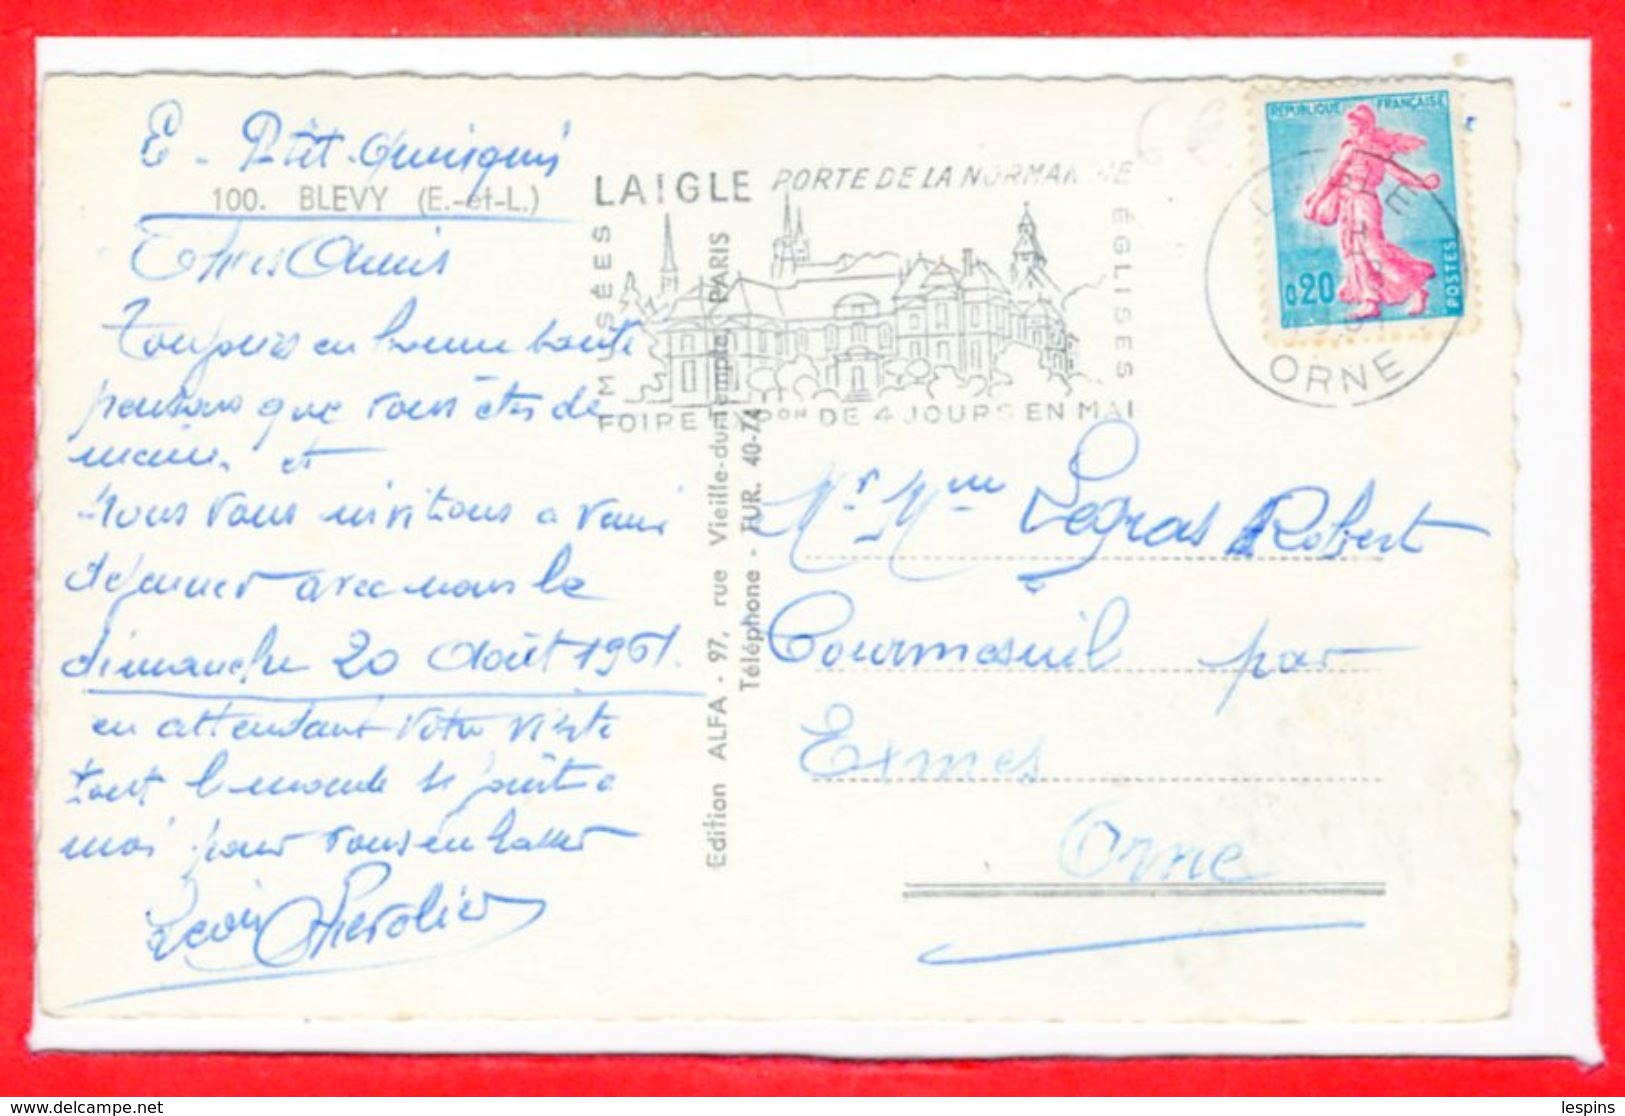 100. BLEVY (E.-et-L.)
Chers Amis
Toujours en bonne santé
pensons que vous êtes de
même. et
Nous vous invitons a venir
dejeuner avec nous le
dimanche 20 Août 1961.
en attendant votre visite
tout le monde se joint a
moi pour vous
LAIGLE PORTE DE LA NORMANDIE
MUSÉES
ÉGLISES
FOIRE EXPOon DE 4 JOURS EN MAI
Edition ALFA - 97, rue Vieille-du-Temple, PARIS
Téléphone - TUR. 40-74
REPUBLIQUE FRANÇAISE
0,20
POSTES
ORNE
Mr Mme Legras Robert
Courmesnil par
Exmes
Orne
delcampe.net
lespins